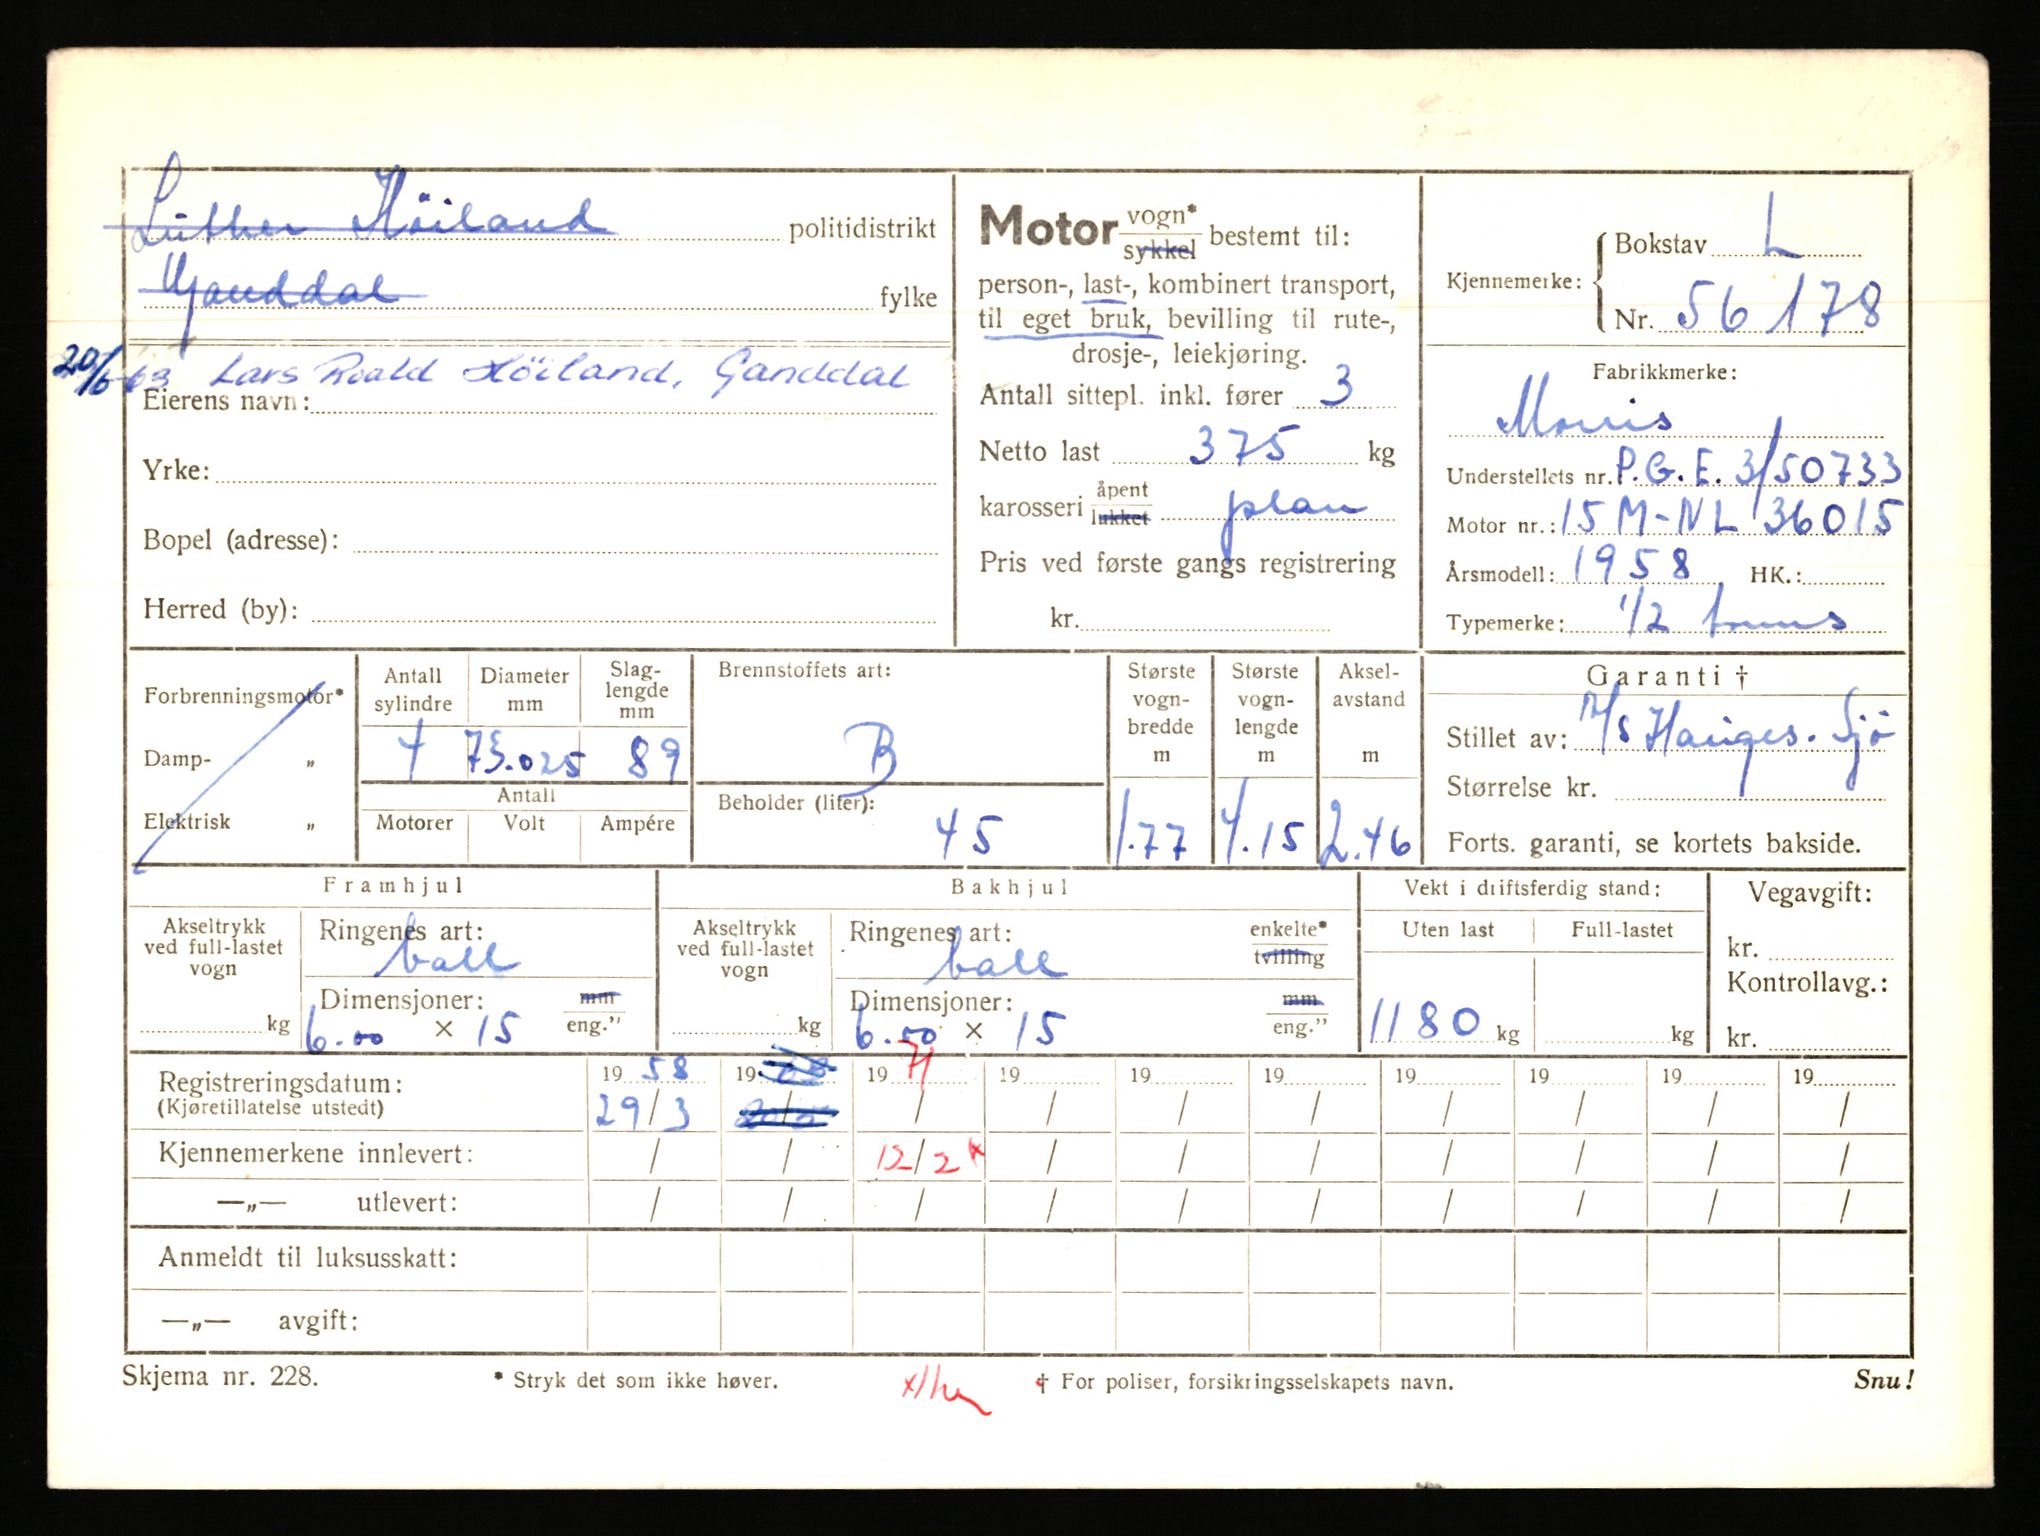 Luther Höiland politidistrikt
Ganddal fylke
20/6-63 Lars Roald Höiland, Ganddal
Eierens navn:
Yrke:
Bopel (adresse):
Herred (by):
Motor vogn* sykkel bestemt til:
person-, last-, kombinert transport,
til eget bruk, bevilling til rute-,
drosje-, leiekjøring.
Antall sittepl. inkl. fører 3
Netto last 375 kg
karosseri åpent lukket plan
Pris ved første gangs registrering
kr.
Kjennemerke: Bokstav L
Nr. 56178
Fabrikkmerke:
Morris
Understellets nr. P.G.E. 3/50733
Motor nr.: 15 M-NL 36015
Årsmodell: 1958 HK.:
Typemerke: 1/2 tonns
Forbrenningsmotor*
Damp- „
Elektrisk „
Antall sylindre Diameter mm Slag-lengde mm
4 73.025 89
Antall
Motorer Volt Ampére
Brennstoffets art:
B
Beholder (liter):
45
Største vogn-bredde m
1.77
Største vogn-lengde m
4.15
Aksel-avstand m
2.46
Garanti †
Stillet av: A/S Hauges. Sjö
Størrelse kr.
Forts. garanti, se kortets bakside.
Framhjul
Akseltrykk ved full-lastet vogn
kg
Ringenes art:
ball
Dimensjoner: mm eng.”
6.00 × 15
Bakhjul
Akseltrykk ved full-lastet vogn
kg
Ringenes art: enkelte* tvilling
ball
Dimensjoner: mm eng.”
6.00 × 15
Vekt i driftsferdig stand:
Uten last Full-lastet
1180 kg kg
Vegavgift:
kr.
Kontrollavg.:
kr.
Registreringsdatum: 19 58 19 19 71 19 19 19 19 19 19 19
(Kjøretillatelse utstedt) 29/3 / / / / / / / / /
Kjennemerkene innlevert: / / 12/2 x / / / / / / /
—„— utlevert: / / / / / / / / / /
Anmeldt til luksusskatt:
—„— avgift:
Skjema nr. 228. * Stryk det som ikke høver. † For poliser, forsikringsselskapets navn. Snu!